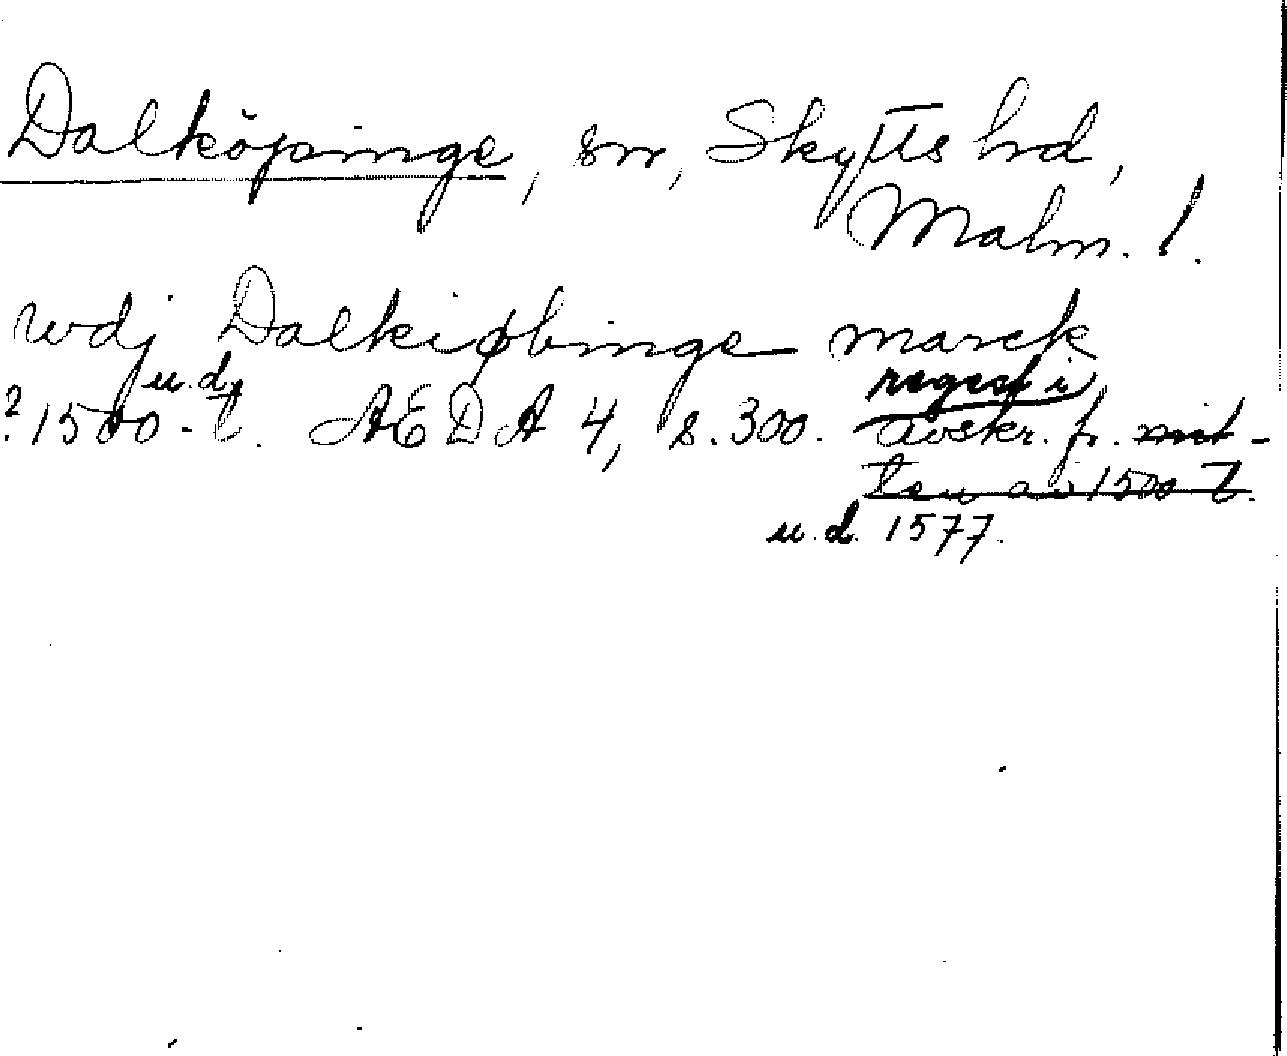 Dalköpinge, sn, Skytts hd,
Malm. l.
wdj Dalkiøbinge marck
u.d. regest i
? 1500-t. AEDA 4, s. 300. avskr. fr. mit-
ten av 1500 t.
u.d. 1577.